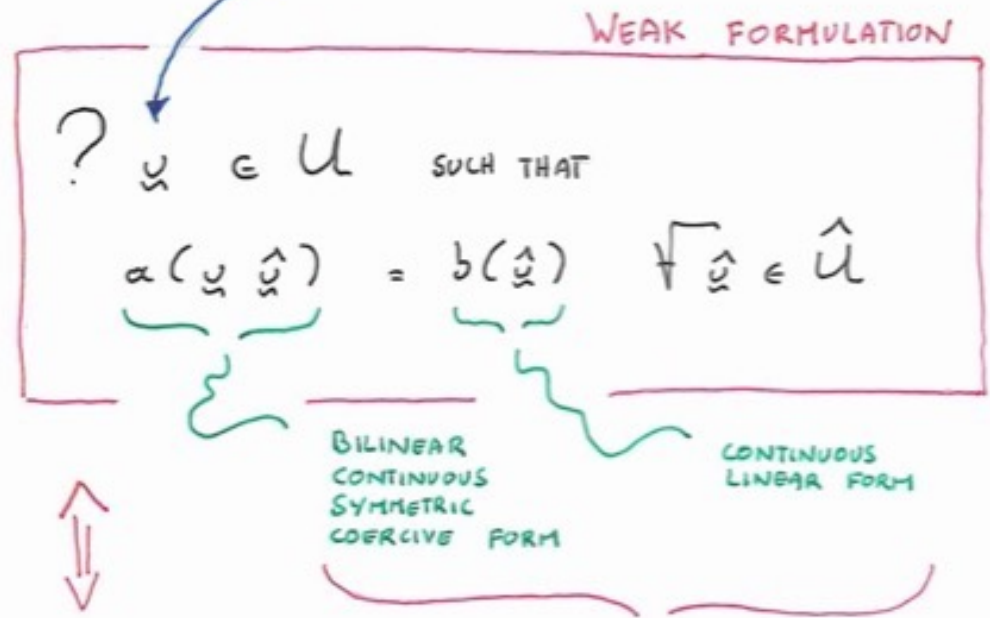 WEAK FORMULATION
? u ∈ U SUCH THAT
a(u û) = b(û) ∀ û ∈ Û
BILINEAR
CONTINUOUS
SYMMETRIC
COERCIVE FORM
CONTINUOUS
LINEAR FORM